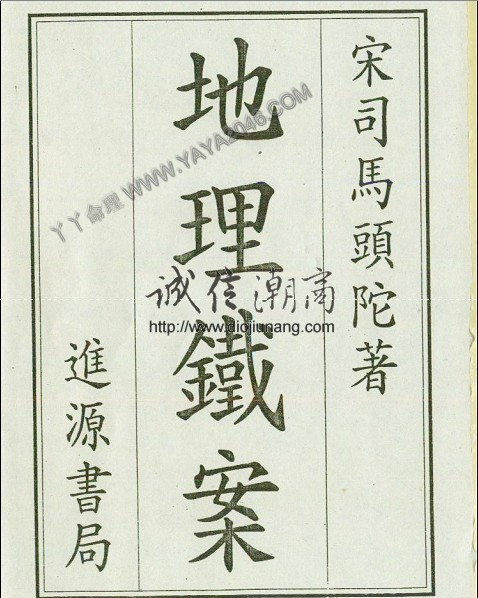 宋司馬頭陀著
地理鐵案
進源書局
丫丫命理 WWW.YAYA2046.COM
誠信潮商
http://www.diojiunang.com